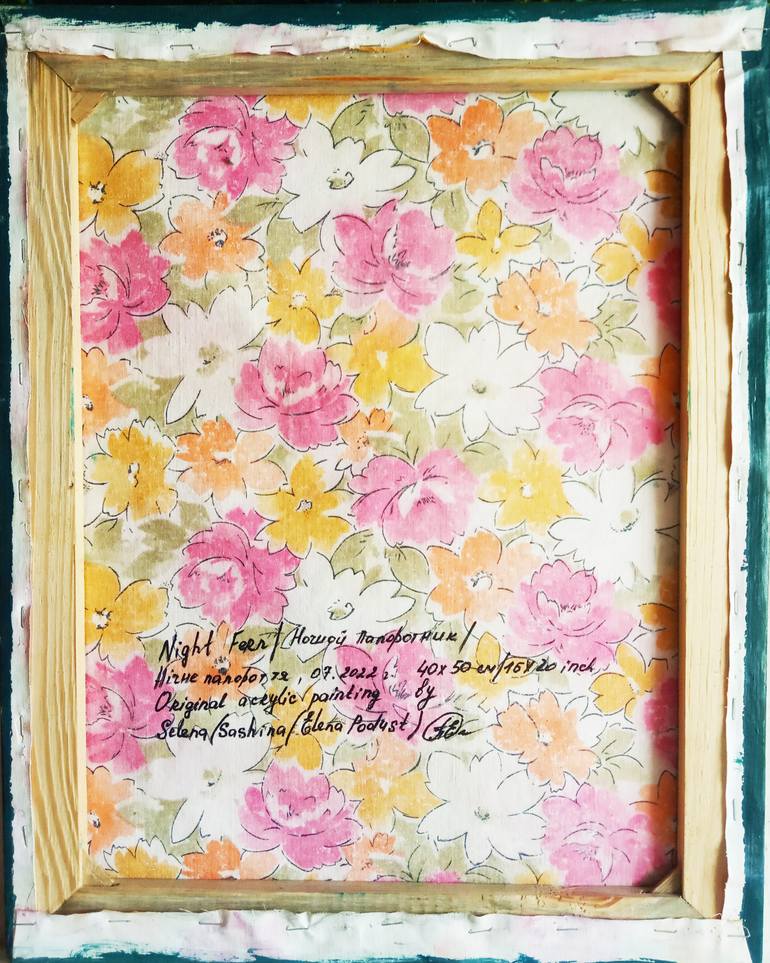 Night Fern/Ночной папоротник/
Нічне папороття, 07.2022 г. 40х50 см/16х20 inch
Original acrylic painting by
Selena/Sashina/Elena Podust)